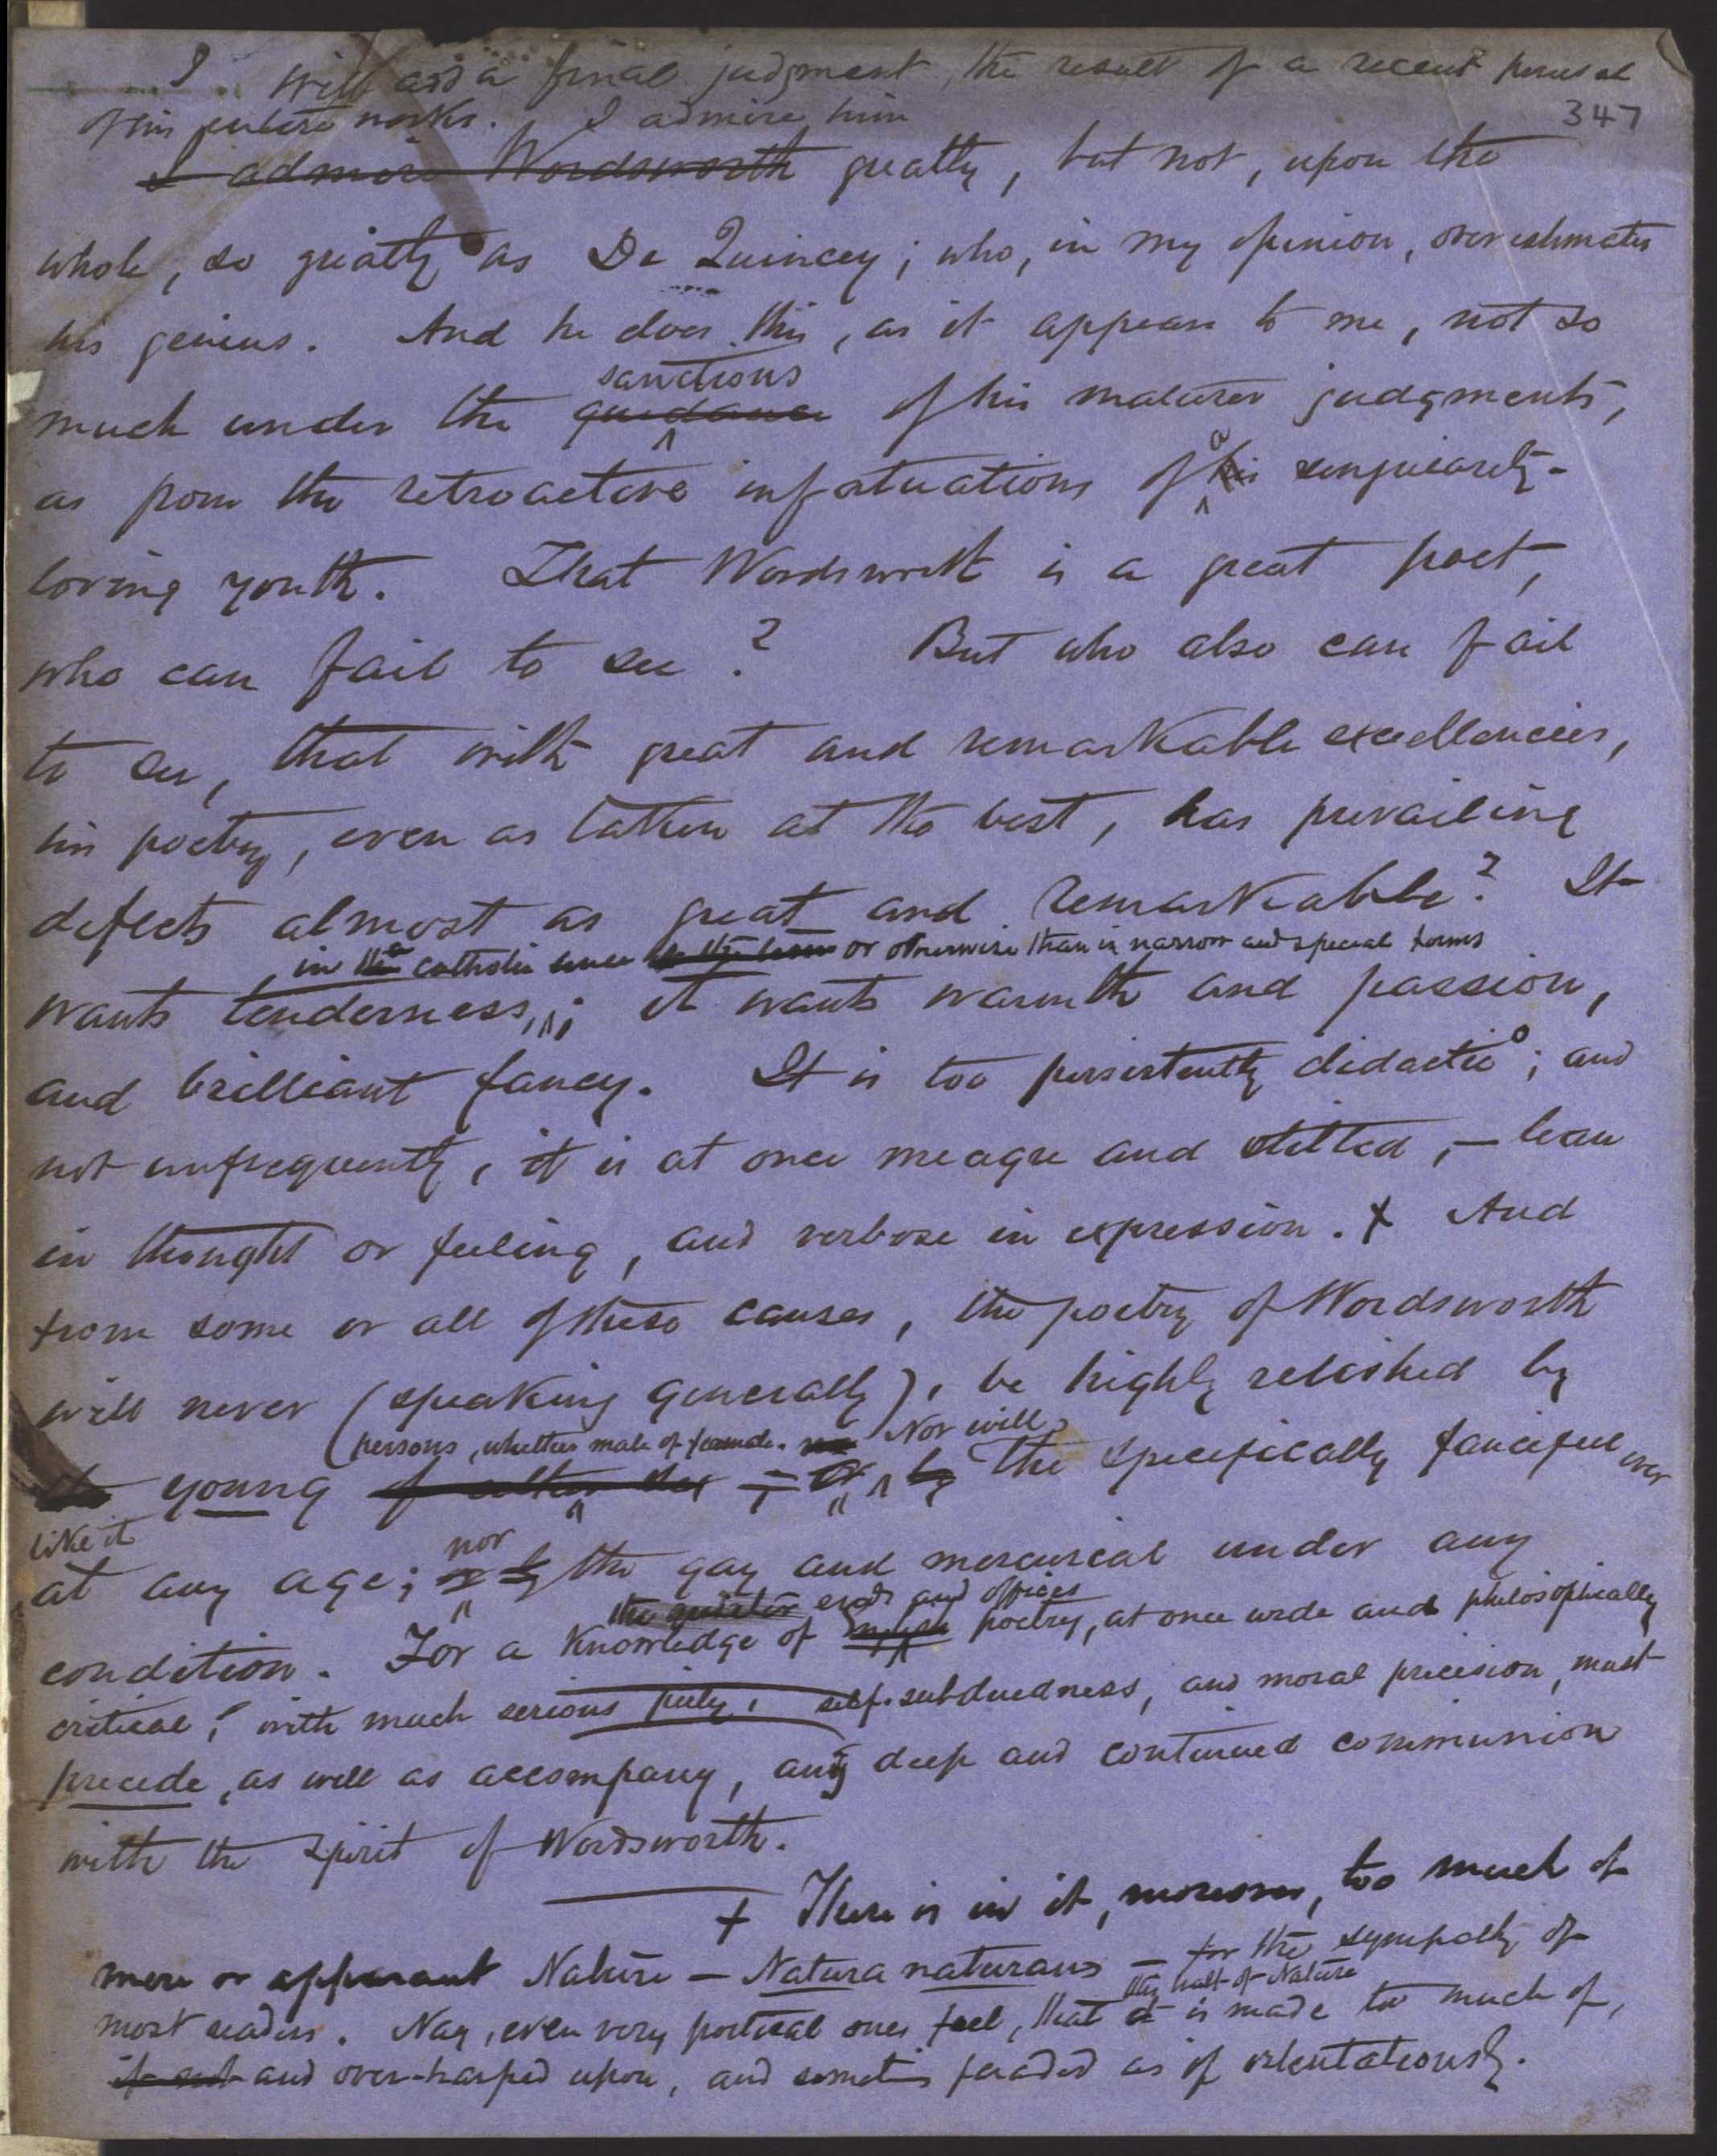 I will add a final judgment, the result of a recent perusal
347
of his entire works. I admire him
I admire Wordsworth greatly, but not, upon the
whole, so greatly as De Quincey; who, in my opinion, overestimates
his genius. And he does this, as it appears to me, not so
sanctions
much under the guidance of his maturer judgments,
a
as from the retroactive infatuations of his singularity-
loving youth. That Wordsworth is a great poet,
who can fail to see? But who also can fail
to see, that with great and remarkable excellencies,
his poetry, even as taken at the best, has prevailing
defects almost as great and remarkable? It
in the a catholic sense or otherwise than in narrow and special forms
wants tenderness,; it wants warmth and passion,
and brilliant fancy. It is too persistently didactic; and
not unfrequently, it is at once meagre and stilted, — lean
in thought or feeling, and verbose in expression. + And
from some or all of these causes, the poetry of Wordsworth
will never (speaking generally), be highly relished by
persons, whether male or female. Nor will
the young of either sex; or by the specifically fanciful ever
like it
nor
at any age; or by the gay and mercurial under any
the greater ends and offices
condition. For a knowledge of poetry, at once wide and philosophically
critical; with much serious piety, self-subduedness, and moral precision, must
precede, as well as accompany, any deep and continued communion
with the spirit of Wordsworth.
+ There is in it, moreover, too much of
mere or apparent Nature — Natura naturans — for the sympathy of
this half of Nature
most readers. Nay, even very poetical ones feel, that it is made too much of,
if not and over-harped upon, and sometimes paraded as if ostentatiously.